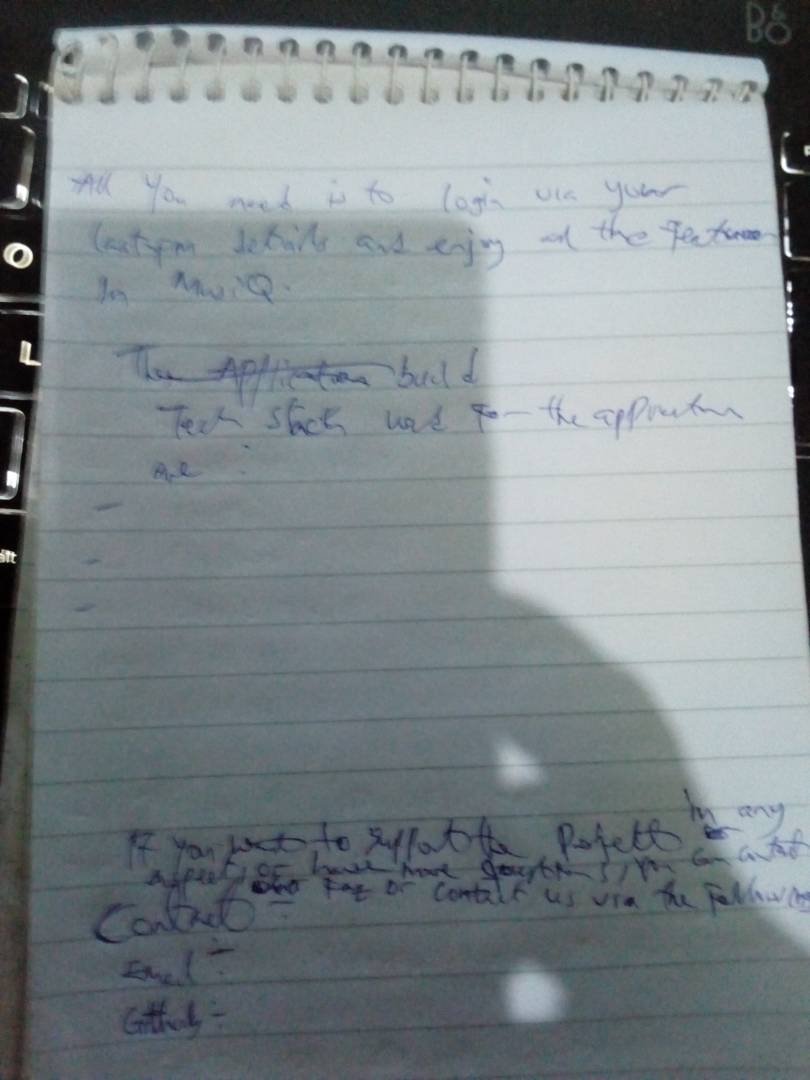 B&O
All you need is to login via your
details and enjoy all the features
in MusiQ.
The Application build
Tech stack used for the application
are :
-
-
-
If you want to support the Project in any
aspect, or have more questions, you can contact
Faq or contact us via the following
Contact :-
Email :-
Github :-
O
L
alt